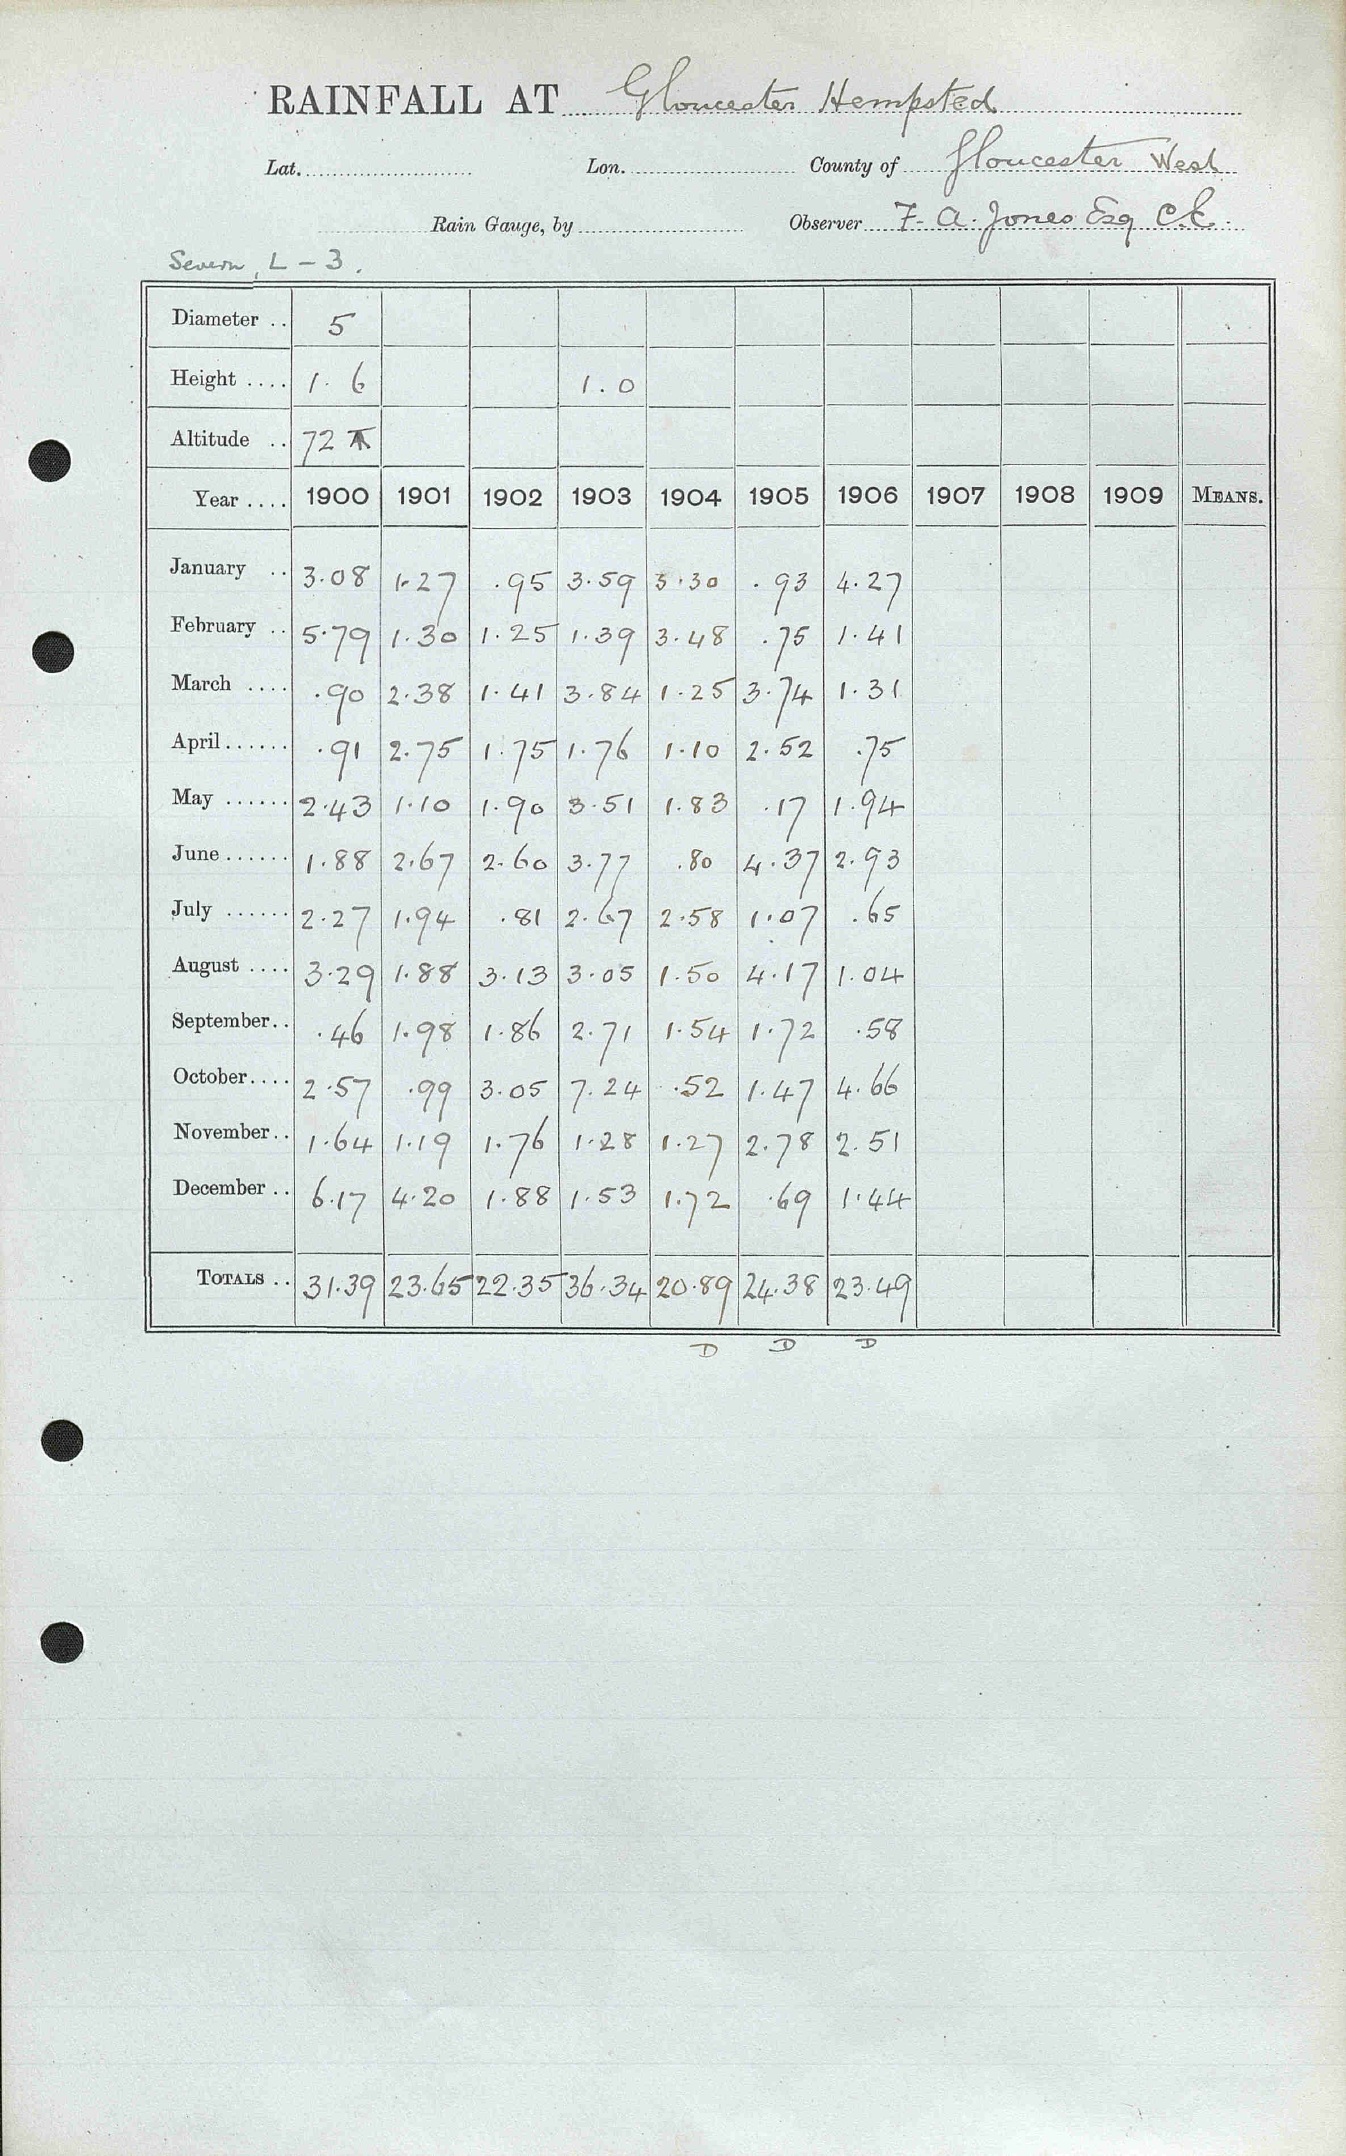 RAINFALL AT Gloucester Hempsted
Lat. Lon. County of Gloucester West
Rain Gauge, by Observer F. A. Jones Esq C.E.
Severn, L - 3.
Diameter .. 5
Height .... 1. 6 1.0
Altitude .. 72
Year .... 1900 1901 1902 1903 1904 1905 1906 1907 1908 1909 MEANS.
January .. 3.08 1.27 .95 3.59 3.30 .93 4.27
February .. 5.79 1.30 1.25 1.39 3.48 .75 1.41
March .... .90 2.38 1.41 3.84 1.25 3.74 1.31
April...... .91 2.75 1.75 1.76 1.10 2.52 .75
May ...... 2.43 1.10 1.90 3.51 1.83 .17 1.94
June...... 1.88 2.67 2.60 3.77 .80 4.37 2.93
July ...... 2.27 1.94 .81 2.67 2.58 1.07 .65
August .... 3.29 1.88 3.13 3.05 1.50 4.17 1.04
September.. .46 1.98 1.86 2.71 1.54 1.72 .58
October.... 2.57 .99 3.05 7.24 .52 1.47 4.66
November.. 1.64 1.19 1.76 1.28 1.27 2.78 2.51
December .. 6.17 4.20 1.88 1.53 1.72 .69 1.44
TOTALS .. 31.39 23.65 22.35 36.34 20.89 24.38 23.49
D D D